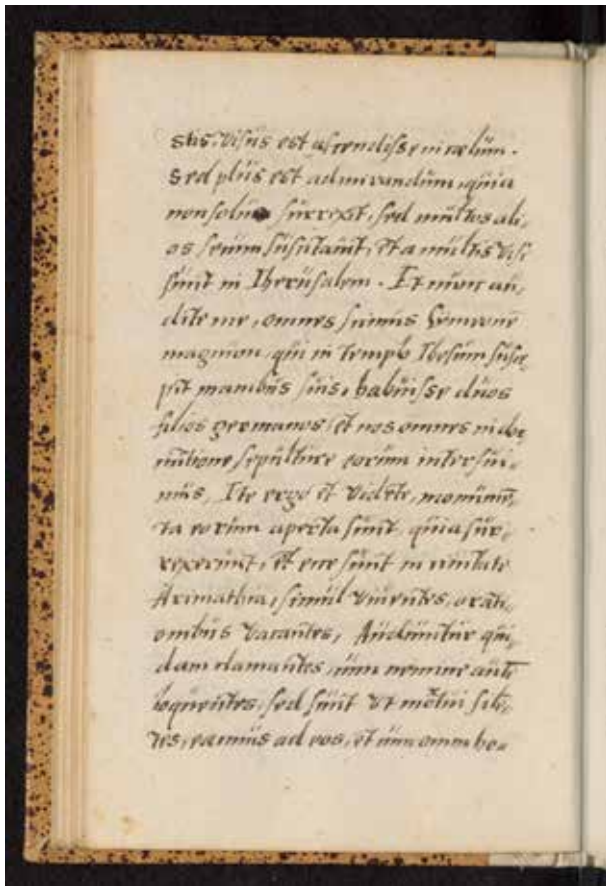 stis, visus est ascendisse in cælum.
Sed plus est admirandum, quia
non solum surrexit, sed multos ali-
os secum suscitavit, et a multis visi
sunt in Iherusalem. Et nunc au-
dite me, omnes scimus Symeonem
magnum, qui in templo Ihesum susce-
pit manibus suis, habuisse duos
filios germanos, et nos omnes in dor
mitione sepulture eorum interfui-
mus, Ite ergo et videte, monumen-
ta eorum aperta sunt, quia sur-
rexerunt, et ecce sunt in civitate
Arimathia, simul viventes, orati-
onibus vacantes, Audiuntur qui-
dam clamantes, cum nemine autem
loquentes, sed sunt ut mortui silen-
tes, eamus ad eos, et cum omni ho-